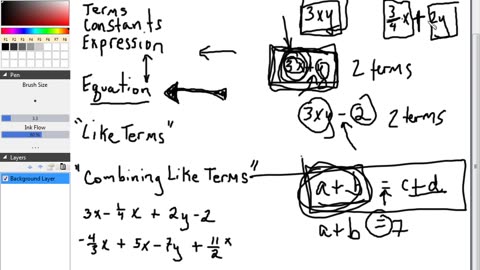 Terms
Constants
Expression
Equation
"Like Terms"
"Combining Like Terms"
3x - 1/4 x + 2y - 2
-4/3 x + 5x - 7y + 11/2 x
3xy
3/4 x + 2y
2 terms
3xy - 2 2 terms
a + b = c + d
a + b = 7
Pen
Brush Size
3.3
Ink Flow
Layers
Background Layer